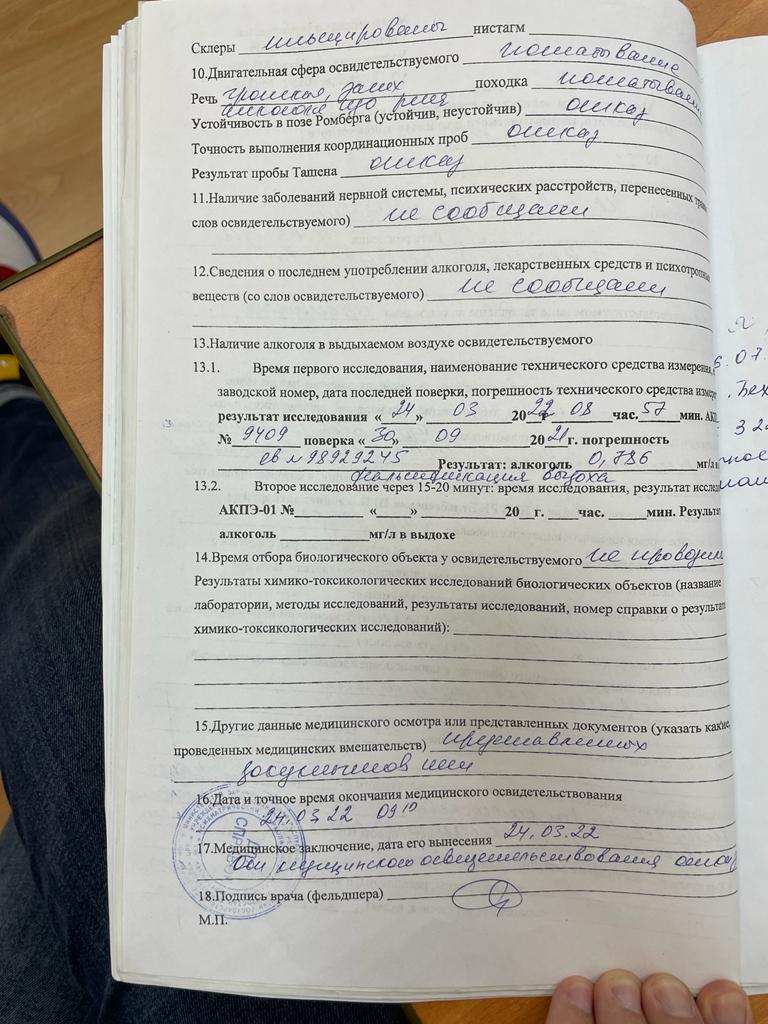 Склеры инъцированы нистагм
10.Двигательная сфера освидетельствуемого пошатывание
Речь громкая, запах походка пошатывание
алкоголя изо рта
Устойчивость в позе Ромберга (устойчив, неустойчив) отказ
Точность выполнения координационных проб отказ
Результат пробы Ташена отказ
11.Наличие заболеваний нервной системы, психических расстройств, перенесенных
слов освидетельствуемого) не сообщает
12.Сведения о последнем употреблении алкоголя, лекарственных средств и психотропных
веществ (со слов освидетельствуемого) не сообщает
13.Наличие алкоголя в выдыхаемом воздухе освидетельствуемого
13.1. Время первого исследования, наименование технического средства измерения,
заводской номер, дата последней поверки, погрешность технического средства
результат исследования «24» 03 2022 г 08 час. 57 мин.
№ 9409 поверка «30» 09 2021 г. погрешность
св №98929245 Результат: алкоголь 0,786 мг/л
фальсификация выдоха
13.2. Второе исследование через 15-20 минут: время исследования, результат
АКПЭ-01 №____ «____» ____20__г. ____час. ____мин. Результат
алкоголь ____мг/л в выдохе
14.Время отбора биологического объекта у освидетельствуемого не проводили
Результаты химико-токсикологических исследований биологических объектов (название
лаборатории, методы исследований, результаты исследований, номер справки о
химико-токсикологических исследований):
15.Другие данные медицинского осмотра или представленных документов (указать какие,
проведенных медицинских вмешательств) представленных
документов нет
16.Дата и точное время окончания медицинского освидетельствования
24.03.22 09 10
17.Медицинское заключение, дата его вынесения 24.03.22
От медицинского освидетельствования отказ
18.Подпись врача (фельдшера)
М.П.